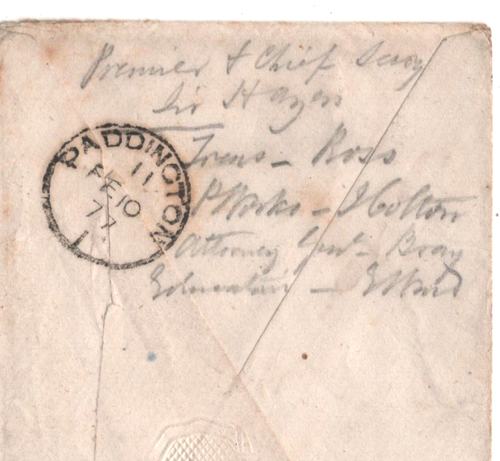 Premier & Chief Secy
Sir H Ayers
Treas – Ross
P Works – J Colton
Attorney Genl – Bray
Education – E Ward
PADDINGTON
11
FE 10
77
1